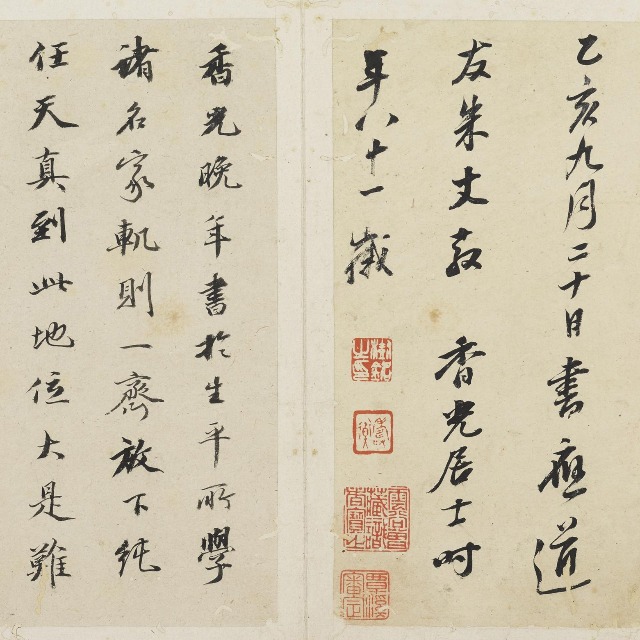 乙亥九月二十日書應道
友朱丈教 香光居士時
年八十一歲
香光晚年書於生平所學
諸名家軌則一齊放下純
任天真到此地位大是難